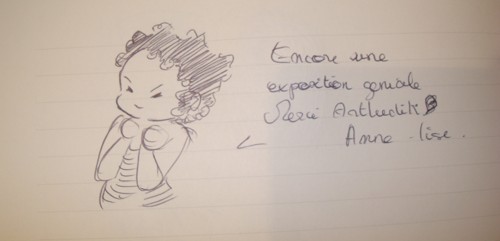 Encore une
exposition geniale
Merci Arthudik
Anne-lise.